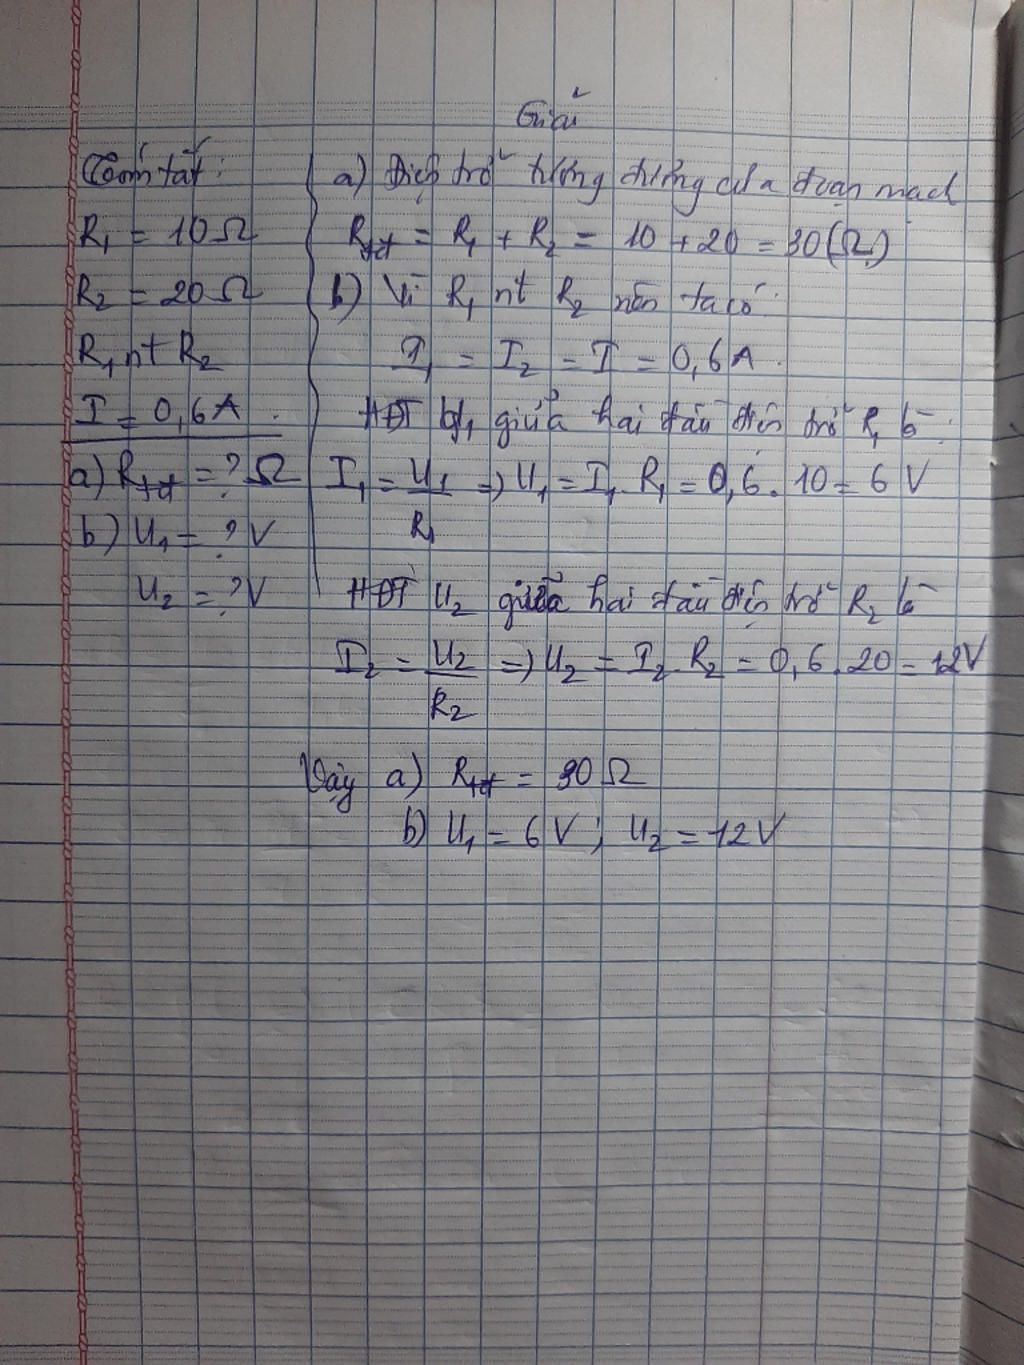 Giải
Tóm tắt:
R₁ = 10Ω
R₂ = 20Ω
R₁ nt R₂
I = 0,6A.
a) Rtđ = ? Ω
b) U₁ = ? V
U₂ = ? V
a) Điện trở tương đương của đoạn mạch
Rtđ = R₁ + R₂ = 10 + 20 = 30(Ω)
b) Vì R₁ nt R₂ nên ta có:
I₁ = I₂ = I = 0,6A.
HĐT U₁ giữa hai đầu điện trở R₁ là:
I₁ = U₁/R₁ => U₁ = I₁.R₁ = 0,6. 10 = 6 V
HĐT U₂ giữa hai đầu điện trở R₂ là
I₂ = U₂/R₂ => U₂ = I₂.R₂ = 0,6.20 = 12V
Vậy a) Rtđ = 30Ω
b) U₁ = 6V ; U₂ = 12V